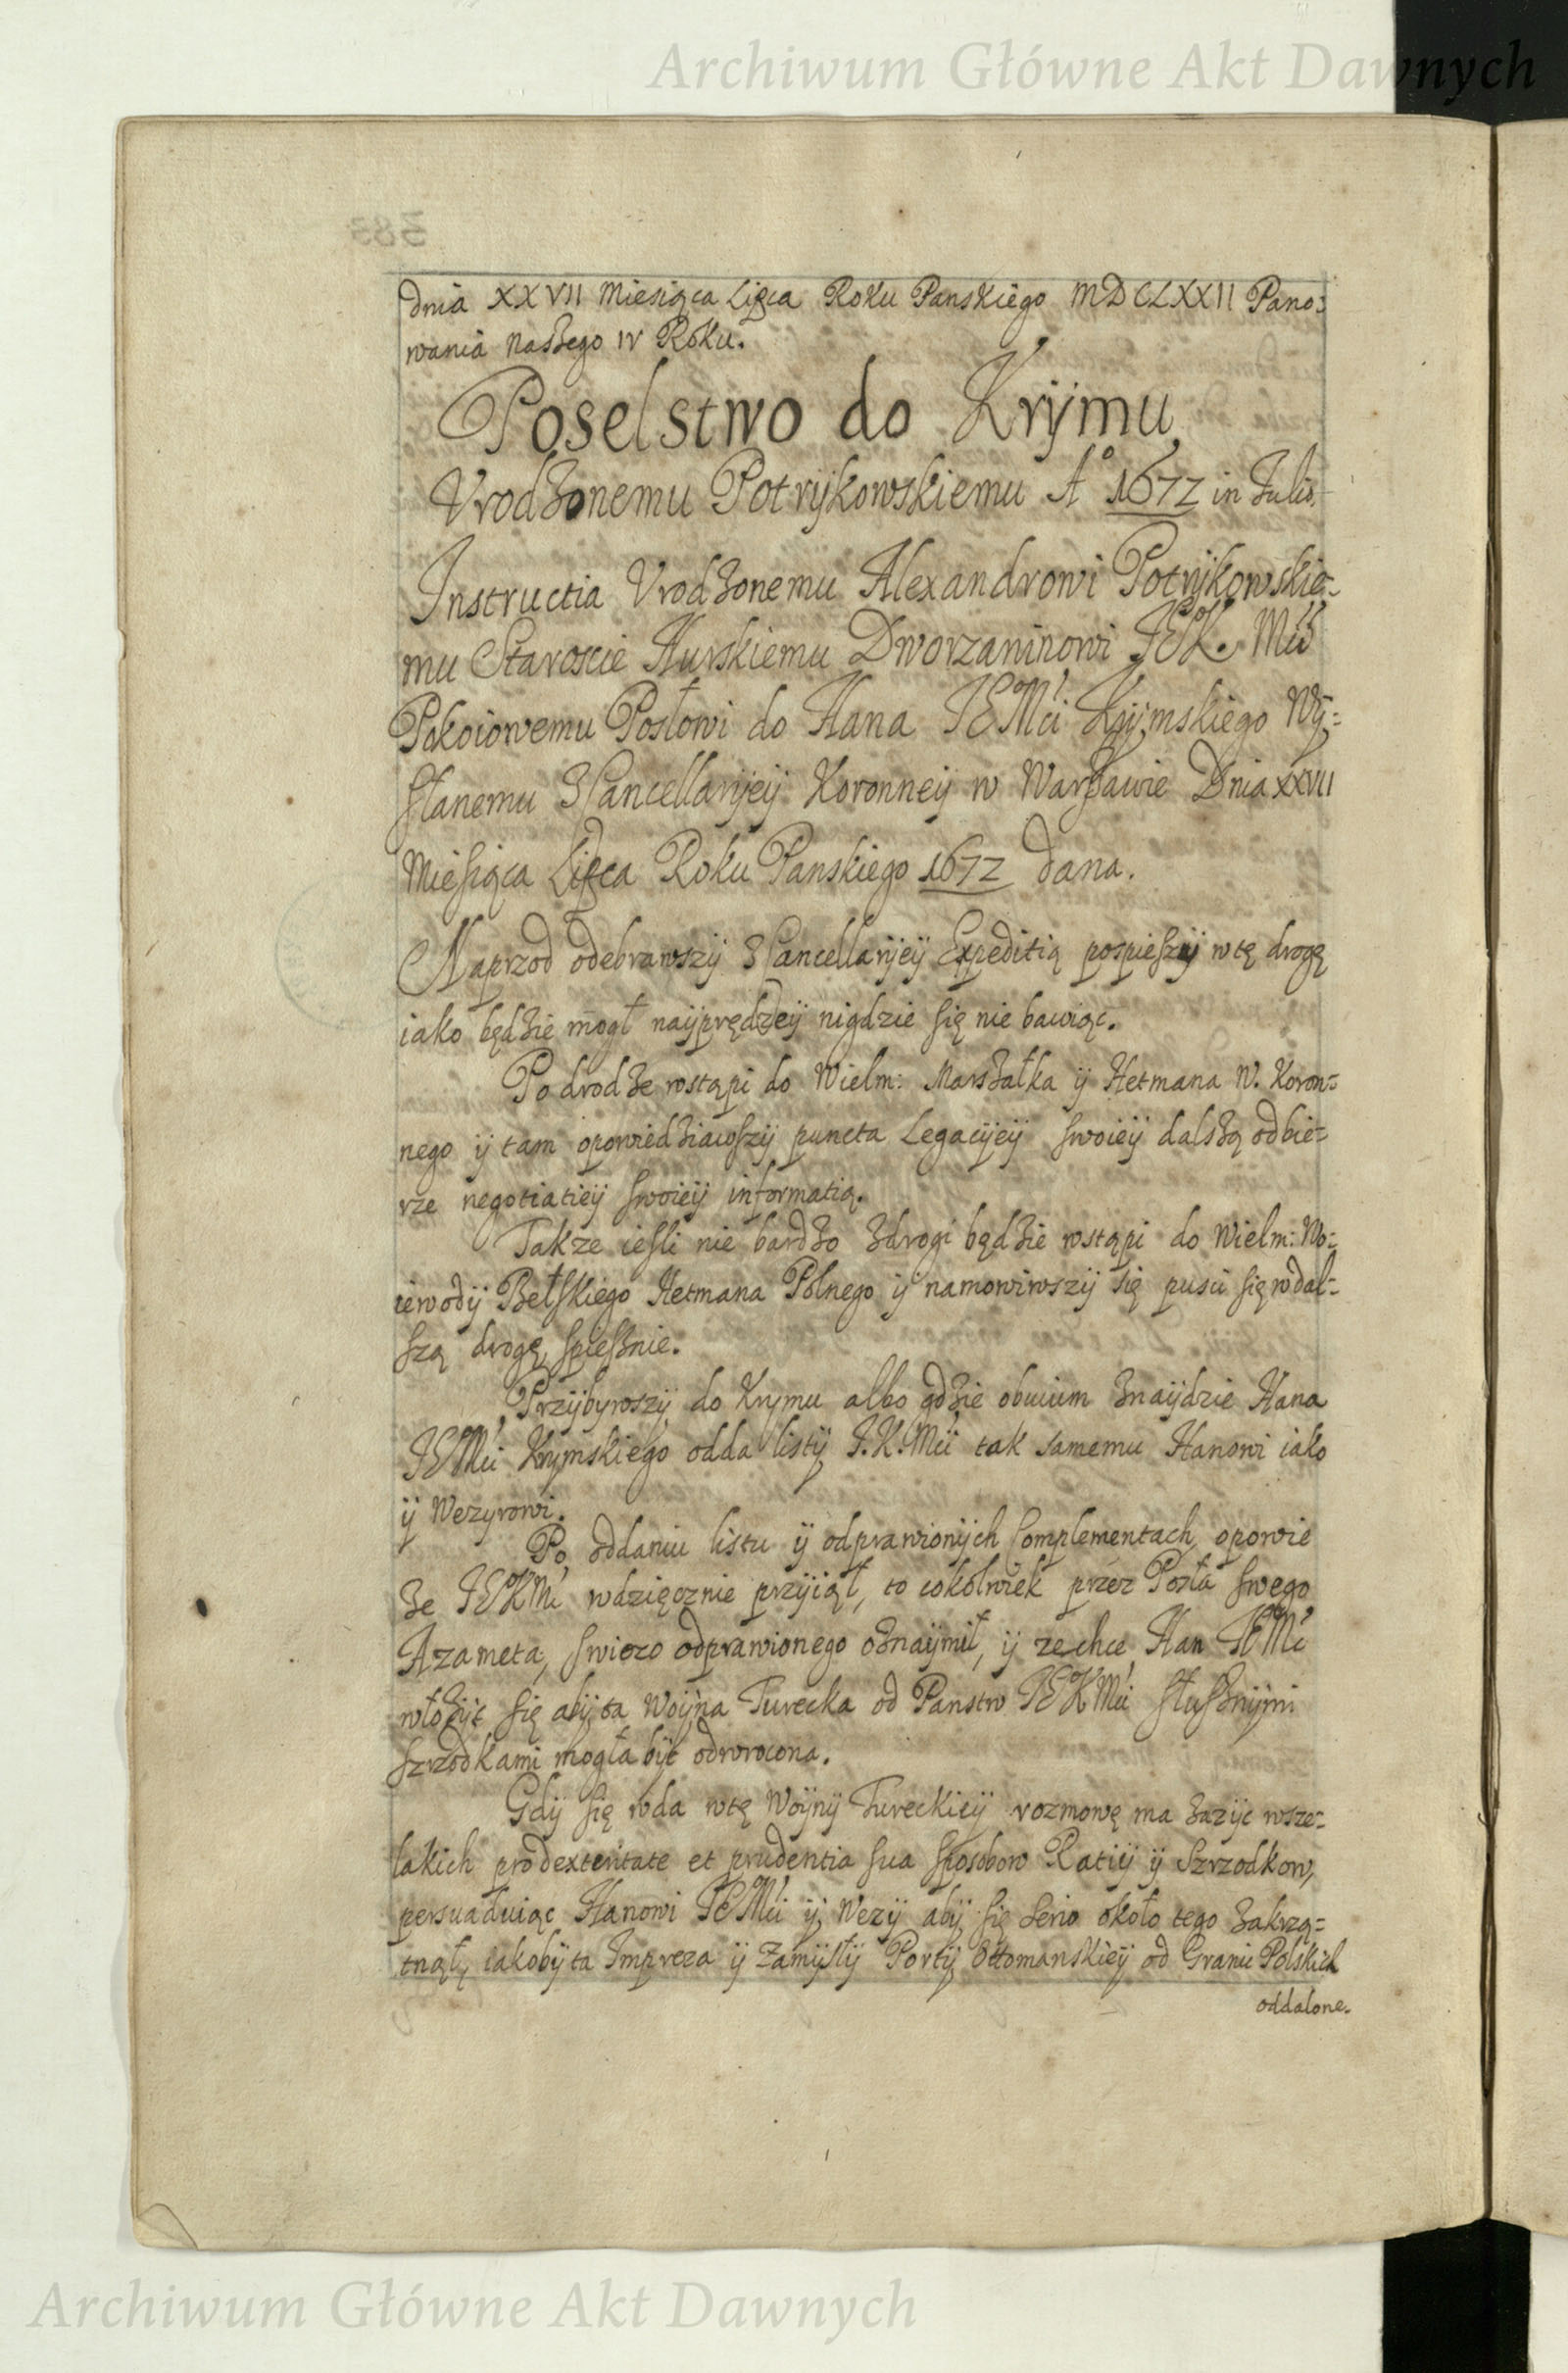 Archiwum Główne Akt Dawnych
383
dnia XXVII Miesiąca Lipca Roku Panskiego MDCLXXII Pano:
wania naszego IV Roku.
Poselstwo do Krÿmu
Vrodzonemu Potrÿkowskiemu A° 1672 in Julio.
Instructia Vrodzonemu Alexandrowi Potrÿkowskie=
mu Staroscie Hurskiemu Dworzaninowi JEK. Mći
Pokoiowemu Posłowi do Hana JEMći Krÿmskiego Wÿ=
słanemu z Cancellarÿeÿ Koronneÿ w Warszawie Dnia XXVII
Miesiąca Lipca Roku Panskiego 1672 dana.
Naprzod odebrawszÿ z Cancellarÿeÿ Expeditią pospieszÿ w tę drogę
iako będzie mogł naÿprędzeÿ nigdzie się nie bawiąc.
Po drodze wstąpi do Wielm: Marszałka ÿ Hetmana W. Koron=
nego ÿ tam opowiedziawszÿ puncta Legacÿeÿ swoieÿ dalszą odbie=
rze negotiatieÿ swoieÿ informatią.
Takze iesli nie bardzo z drogi będzie wstąpi do Wielm: Wo=
iewodÿ Bełskiego Hetmana Polnego ÿ namowiwszÿ się pusci się w dal=
szą drogę spiesznie.
Przÿbywszÿ do Krymu albo gdzie obuium znaÿdzie Hana
JEMći Krymskiego odda listÿ J.K.Mći tak samemu Hanowi iako
ÿ Wezyrowi.
Po oddaniu listu ÿ odprawionÿch Complementach, opowie
ze JEKMć wdzięcznie przÿiął, to cokolwiek przez Posła swego
Azameta, swiezo odprawionego oznaÿmił, ÿ ze chce Han JEMć
włozÿć się abÿ ta Woÿna Turecka od Panstw JEKMći słusznÿmi
szrzodkami mogła bÿć odwrocona.
Gdÿ się wda w tę Woÿnÿ Tureckieÿ rozmowę ma zazÿć wsze=
lakich pro dexteritate et prudentia sua sposobow Ratiÿ ÿ Szrzodkow,
persuaduiąc Hanowi JEMći ÿ Wezÿ abÿ się serio około tego zakrzą=
tnąłÿ iakobÿ ta Impreza ÿ Zamÿsłÿ Portÿ Ottomanskieÿ od Granic Polskich
oddalone.
Archiwum Główne Akt Dawnych